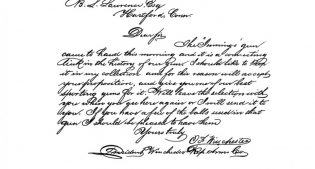 B. L. Lawrence, Esq
Hartford, Conn
Dear Sir
The "Jennings" gun
came to hand this morning and it is a connecting
link in the history of our Guns I should like to keep
it in my collection and for this reason will accept
your proposition, and give you one of our best
sporting guns for it. Will leave the selection with
you when you get here again or I will send it to
you. If you have a few of the balls used in that
gun I should be pleased to have them
Yours truly
O. F. Winchester
President Winchester Rep. Arms Co